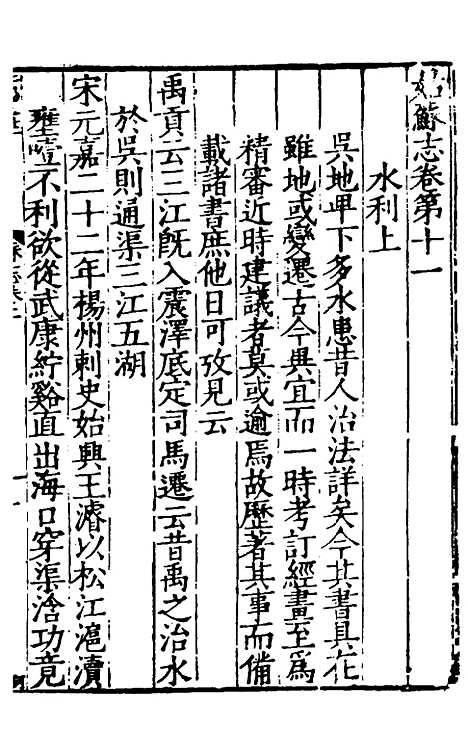 姑蘇志卷第十一
水利上
吳地卑下多水患昔人治法詳矣今其書具在
雖地或變遷古今異宜而一時考訂經畫至爲
精審近時建議者莫或逾焉故歷著其事而備
載諸書庶他日可攷見云
禹貢云三江旣入震澤底定司馬遷云昔禹之治水
於吳則通渠三江五湖
宋元嘉二十二年楊州刺史始興王濬以松江滬瀆
壅噎不利欲從武康紵谿直出海口穿渠浛功竟